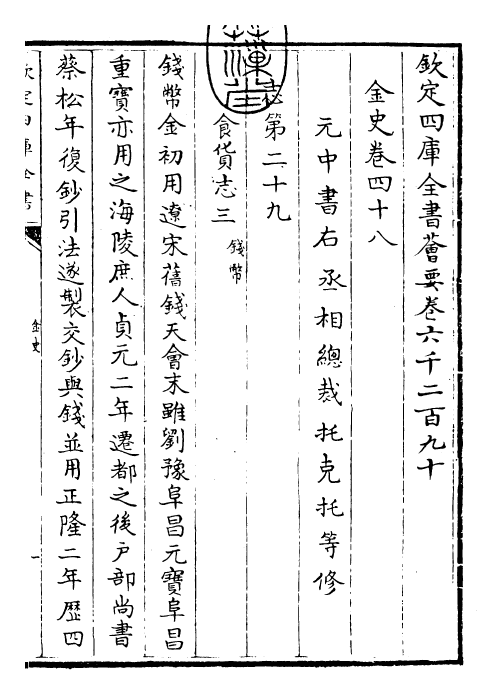 欽定四庫全書薈要卷六千二百九十
金史卷四十八
元中書右丞相總裁托克托等修
志第二十九
食貨志三 錢幣
錢幣金初用遼宋舊錢天會末雖劉豫阜昌元寶阜昌
重寶亦用之海陵庶人貞元二年遷都之後户部尚書
蔡松年復鈔引法遂製交鈔與錢並用正隆二年歷四
欽定四庫全書
金史
一